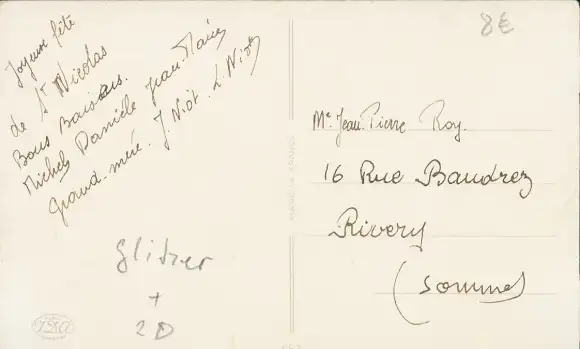 Joyeuse fête
de St Nicolas
Bons Baisers.
Michel Danièle Jean-Marie
Grand-mère. J. Niot. L. Niot
Glitzer
+
2D
8€
MADE IN FRANCE
Mr Jean-Pierre Roy.
16 Rue Baudrez
Rivery
(Somme)